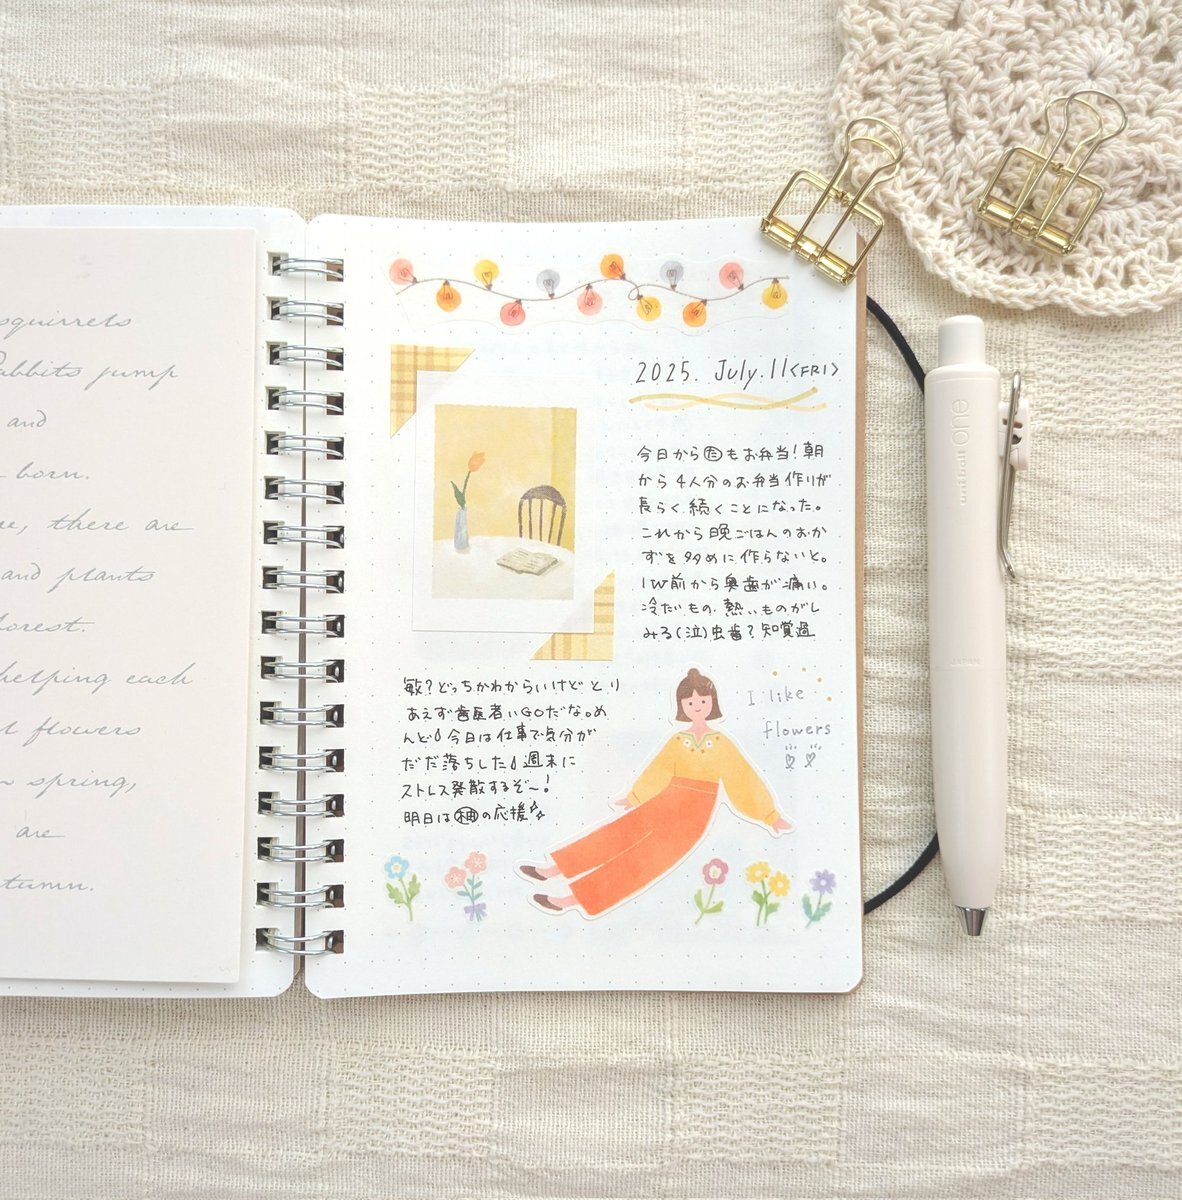 squirrels
rabbits jump
and
born.
there are
and plants
forest.
helping each
flowers
spring,
are
autumn.
2025. July.11<FRI>
今日から㊧もお弁当!朝
から4人分のお弁当作りが
長らく続くことになった。
これから晩ごはんのおか
ずを多めに作らないと。
1W前から奥歯が痛い。
冷たいもの、熱いものがし
みる(泣)虫歯?知覚過
敏?どっちかわからいけどとり
あえず歯医者にGOだな。め
んど
今日は仕事で気分が
だだ落ちした
週末に
ストレス発散するぞ〜!
明日はの応援
I like
flowers
uni-ball one
JAPAN